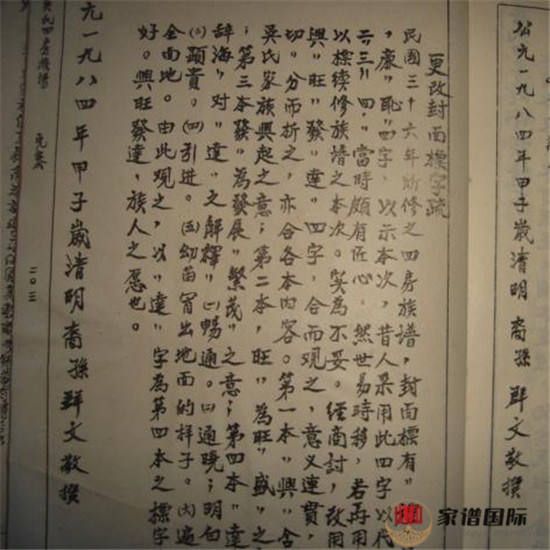 公元一九八四年甲子歲清明裔孫 群文敬撰
更改封面標字疏
民國三十六年所修之四房族譜，封面標有"
，廉"恥"四字，以示本次，昔人采用此四字以代
二"三"四，"當時頗有匠心。然世易時移，若再用
以標续修族譜之本次。实為不妥。經商討，改用
興"旺"發"達"四字，合而观之，意义連貫，
切。分而析之，亦合各本内容。第一本"興"含
吳氏家族興起之意；第二本，旺"為旺"盛"之
；第三本"發"為發展"繁茂"之意；第四本"達
辭海"对"達"之解釋"㈠暢通。㈡通曉；明白
㈢顕貴。㈣引進。㈤幼苗冒出地面的样子。㈥遍
全面地。由此观之，以"達"字為第四本之標字
好。興旺發達，族人之愿也。
元一九八四年甲子歲清明裔孫群文敬撰
吳氏四房族譜
二〇三
家谱国际